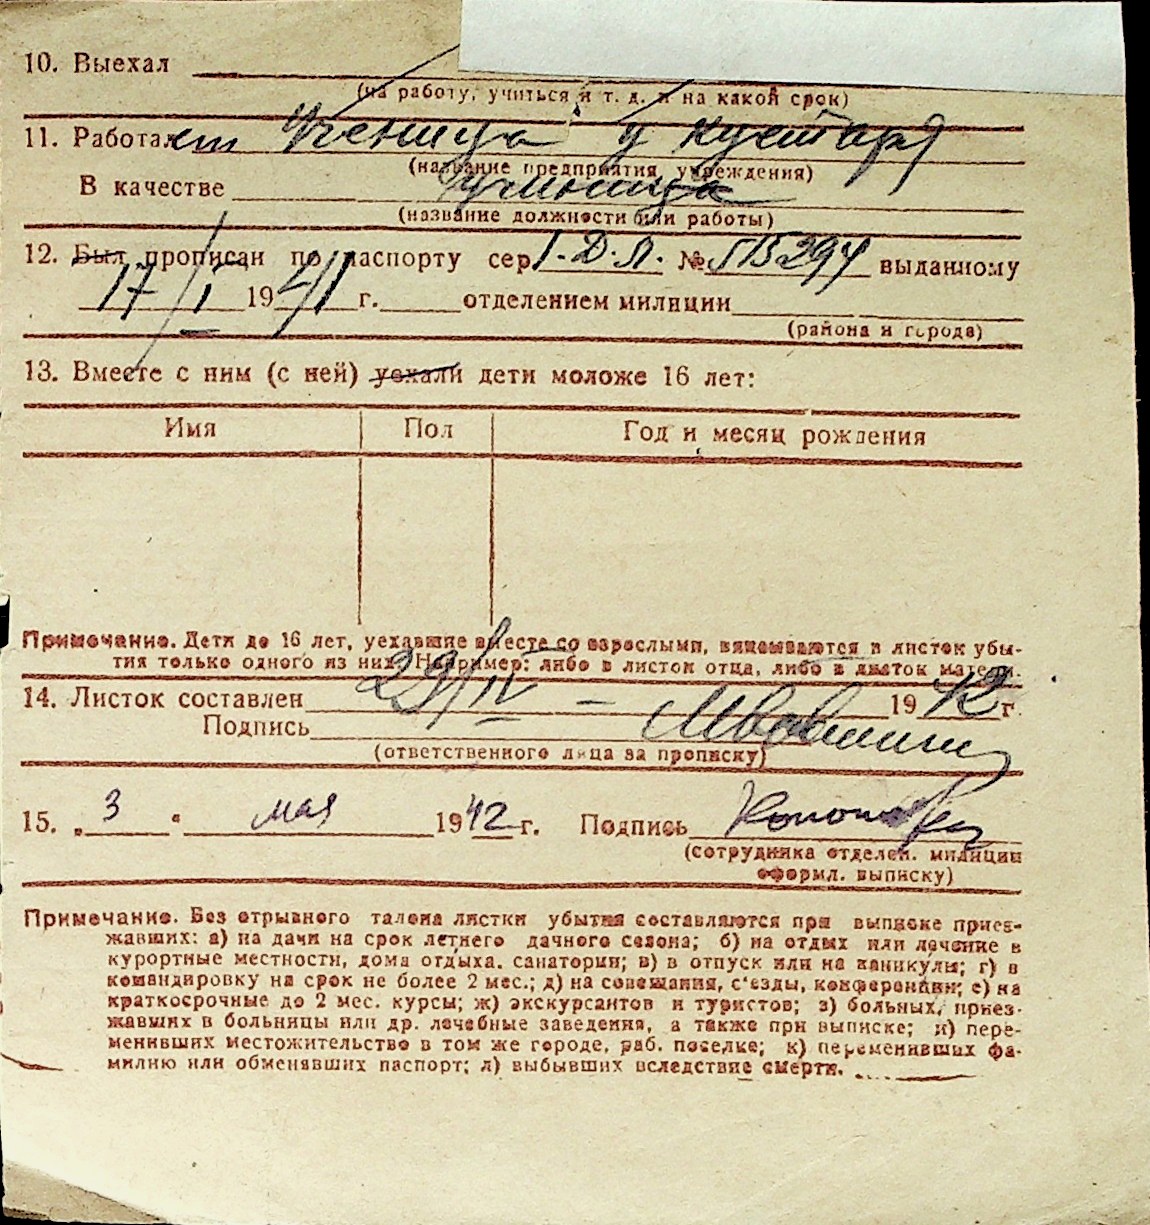 10. Выехал
(на работу, учиться и т. д. и на какой срок)
11. Работает Ученица у кустаря
(название предприятия учреждения)
В качестве ученица
(название должности или работы)
12. Был прописан по паспорту сер. № выданному
17/I 1941 г. отделением милиции
(района и города)
13. Вместе с ним (с ней) уехали дети моложе 16 лет:
Имя Пол Год и месяц рождения
Примечание. Дети до 16 лет, уехавшие вместе со взрослыми, вписываются в листок убы-
тия только одного из них. Например: либо в листок отца, либо в листок матери.
14. Листок составлен 29/IV – 1942 г.
Подпись
(ответственного лица за прописку)
15. „ 3 “ мая 1942 г. Подпись
(сотрудника отделен. милиции
оформл. выписку)
Примечание. Без отрывного талона листки убытия составляются при выписке приез-
жавших: а) на дачи на срок летнего дачного сезона; б) на отдых или лечение в
курортные местности, дома отдыха. санатории; в) в отпуск или на каникулы; г) в
командировку на срок не более 2 мес.; д) на совещания, с'езды, конференции; е) на
краткосрочные до 2 мес. курсы; ж) экскурсантов и туристов; з) больных, приез-
жавших в больницы или др. лечебные заведения, а также при выписке; и) пере-
менивших местожительство в том же городе, раб. поселке; к) переменивших фа-
милию или обменявших паспорт; л) выбывших вследствие смерти.